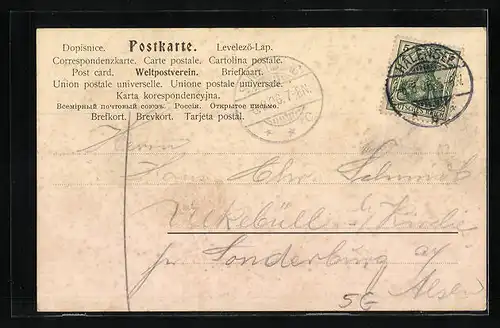 Dopisnice. Postkarte. Levelező-Lap.
Correspondenzkarte. Carte postale. Cartolina postale.
Post card. Weltpostverein. Briefkaart.
Union postale universelle. Unione postale universale.
Karta korespondencyjna.
Всемірный почтовый союзъ. Россія. Открытое письмо.
Brefkort. Brevkort. Tarjeta postal.
Herrn
Hans Chr. Schmidt
Ulkebüll
pr. Sonderburg a/
Alsen
5G